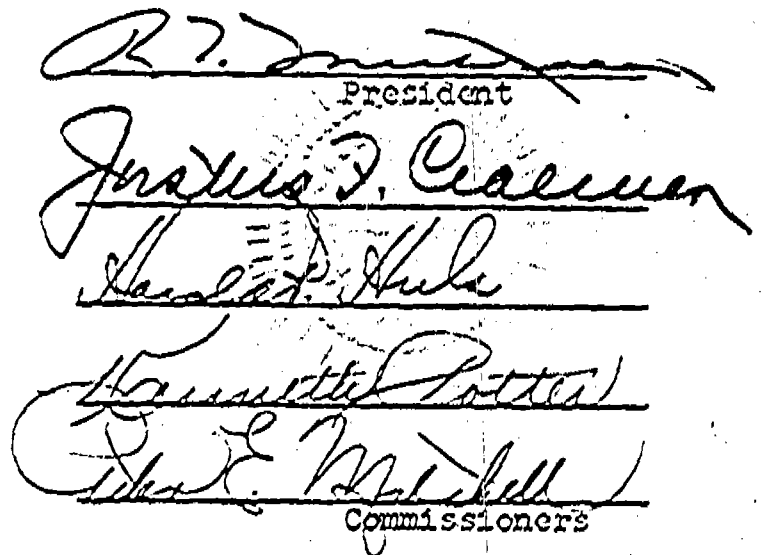 R. F.
President
Justus F. Craemer
Harold P. Huls
Kenneth Potter
Peter E. Mitchell
Commissioners